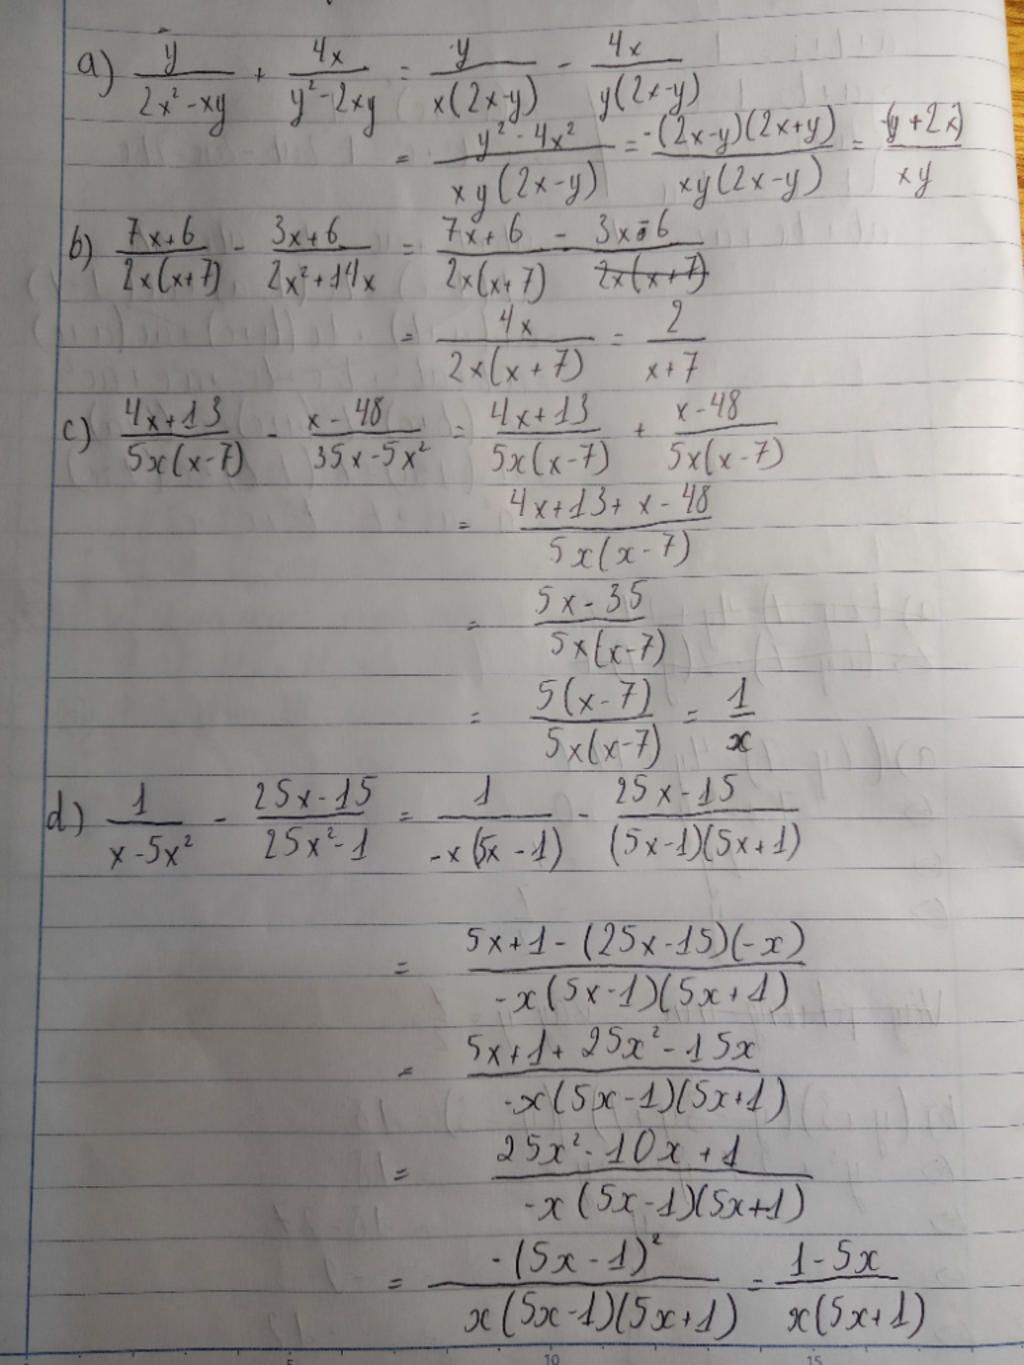 a) y/(2x²-xy) + 4x/(y²-2xy) = y/(x(2x-y)) - 4x/(y(2x-y))
= (y²-4x²)/(xy(2x-y)) = -(2x-y)(2x+y)/(xy(2x-y)) = -(y+2x)/(xy)
b) (7x+6)/(2x(x+7)) - (3x+6)/(2x²+14x) = (7x+6 - 3x-6)/(2x(x+7))
= 4x/(2x(x+7)) = 2/(x+7)
c) (4x+13)/(5x(x-7)) - (x-48)/(35x-5x²) = (4x+13)/(5x(x-7)) + (x-48)/(5x(x-7))
= (4x+13+x-48)/(5x(x-7))
= (5x-35)/(5x(x-7))
= 5(x-7)/(5x(x-7)) = 1/x
d) 1/(x-5x²) - (25x-15)/(25x²-1) = 1/(-x(5x-1)) - (25x-15)/((5x-1)(5x+1))
= (5x+1-(25x-15)(-x))/(-x(5x-1)(5x+1))
= (5x+1+25x²-15x)/(-x(5x-1)(5x+1))
= (25x²-10x+1)/(-x(5x-1)(5x+1))
= -(5x-1)²/(x(5x-1)(5x+1)) = (1-5x)/(x(5x+1))